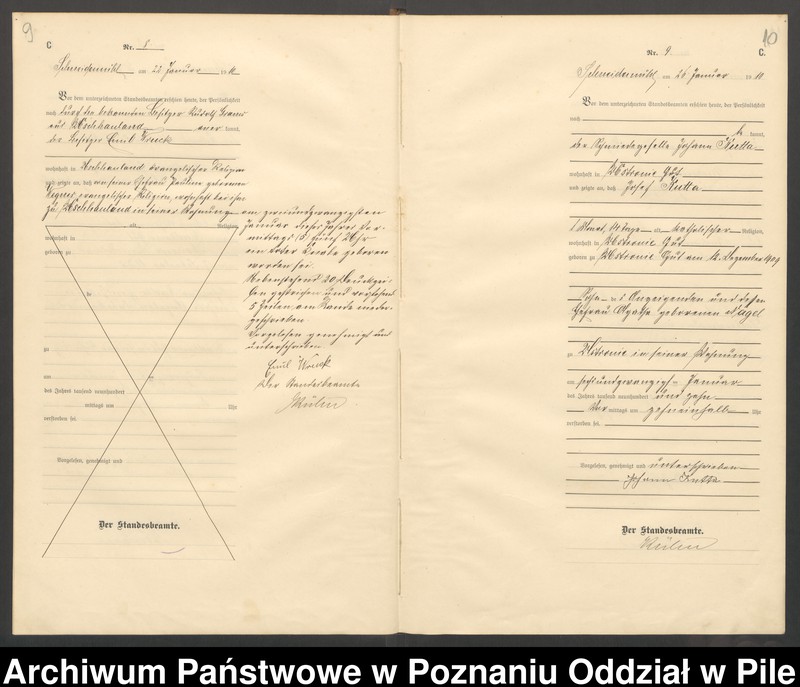 9
C
Nr. 8
Schneidemühl am 22 Januar 1910
Vor dem unterzeichneten Standesbeamten erschien heute, der Persönlichkeit
nach durch den bekannten Besitzer Rudolf
aus Uschhauland anerkannt,
der Besitzer Emil
wohnhaft in Uschhauland evangelischer Religion
und zeigte an, daß von seiner Ehefrau Pauline geborenen
evangelischer Religion, wohnhaft bei ihm
zu Uschhauland in seiner Wohnung
am zweiundzwanzigsten
Januar dieses Jahres Vor-
mittags 5 fünf Uhr
geboren
worden sei.
Nebenstehend 20 Druckzei-
len gestrichen und vorstehend
5 Zeilen am Rande nieder-
geschrieben
Vorgelesen genehmigt und
unterschrieben
Emil
Der Standesbeamte
alt Religion,
wohnhaft in
geboren zu
in
zu
am
des Jahres tausend neunhundert
mittags um Uhr
verstorben sei.
Vorgelesen, genehmigt und
Der Standesbeamte.
10
Nr. 9
C.
Schneidemühl am 26 Januar 1910
Vor dem unterzeichneten Standesbeamten erschien heute, der Persönlichkeit
nach
kannt,
der Schmiedegeselle Johann Kutta
wohnhaft in Gut
und zeigte an, daß Josef Kutta
1 Monat, 14 tage alt katholischer Religion,
wohnhaft in Gut
geboren zu Gut am 12. Dezember 1909
Sohn des Anzeigenden und dessen
Ehefrau Agathe geborenen Nagel
zu in seiner Wohnung
am sechsundzwanzigsten Januar
des Jahres tausend neunhundert und zehn
Vormittags um zehneinhalb Uhr
verstorben sei.
Vorgelesen, genehmigt und unterschrieben
Johann Kutta
Der Standesbeamte.
Archiwum Państwowe w Poznaniu Oddział w Pile